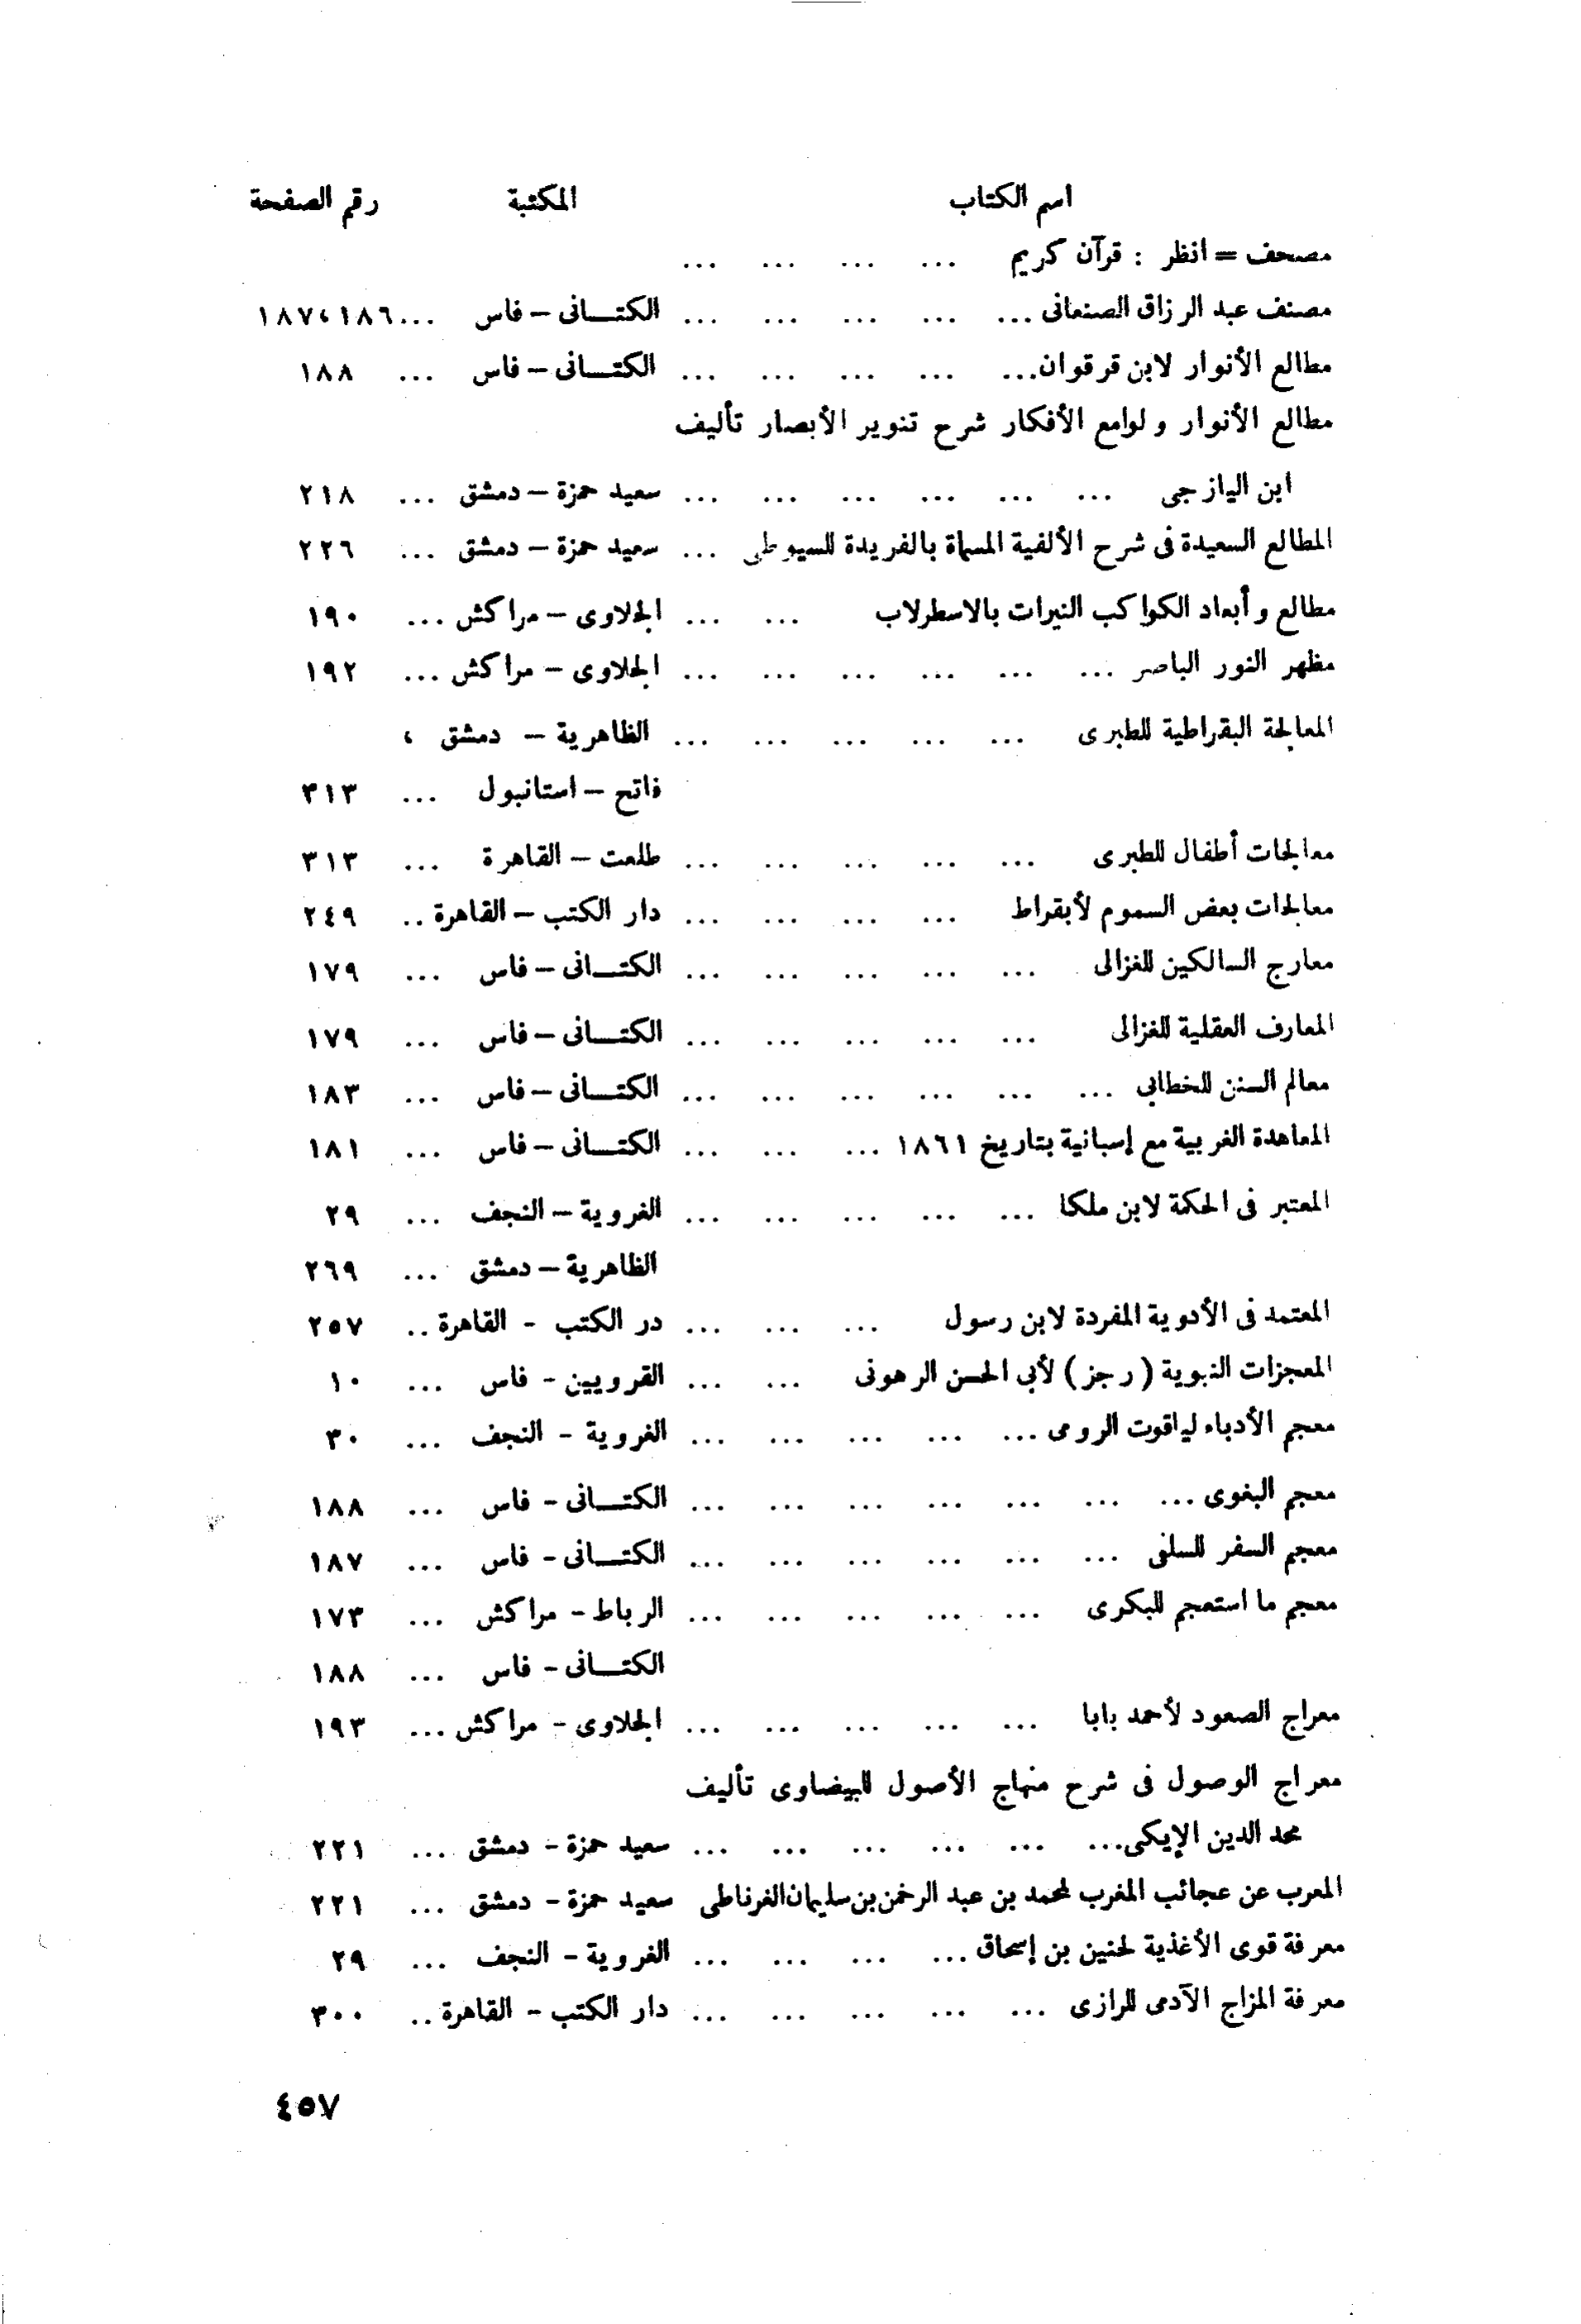 اسم الكتاب المكتبة رقم الصفحة
مصحف = انظر : قرآن كريم ... ... ... ...
مصنف عبد الرزاق الصنعانى ... ... ... ... ... الكتـانى – فاس ... ١٨٦، ١٨٧
مطالع الأنوار لابن قرقوان ... ... ... ... ... الكتـانى – فاس ... ١٨٨
مطالع الأنوار ولوامع الأفكار شرح تنوير الأبصار تأليف
ابن اليازجى ... ... ... ... ... ... سعيد حمزة – دمشق ... ٢١٨
المطالع السعيدة فى شرح الألفية المسماة بالفريدة للسيوطى ... سعيد حمزة – دمشق ... ٢٢٦
مطالع وأبعاد الكواكب النيرات بالاسطرلاب ... ... الجلاوى – مراكش ... ١٩٠
مظهر النور الباصر ... ... ... ... ... ... الجلاوى – مراكش ... ١٩٢
المعالجة البقراطية للطبرى ... ... ... ... ... الظاهرية – دمشق ،
فاتح – استانبول ... ٣١٣
معالجات أطفال للطبرى ... ... ... ... ... طلعت – القاهرة ... ٣١٣
معالجات بعض السموم لأبقراط ... ... ... ... دار الكتب – القاهرة .. ٢٤٩
معارج السالكين للغزالى ... ... ... ... ... الكتـانى – فاس ... ١٧٩
المعارف العقلية للغزالى ... ... ... ... ... الكتـانى – فاس ... ١٧٩
معالم السنن للخطابى ... ... ... ... ... ... الكتـانى – فاس ... ١٨٣
المعاهدة الغربية مع إسبانية بتاريخ ١٨٦١ ... ... ... الكتـانى – فاس ... ١٨١
المعتبر فى الحكمة لابن ملكا ... ... ... ... ... الغروية – النجف ... ٢٩
الظاهرية – دمشق ... ٢٦٩
المعتمد فى الأدوية المفردة لابن رسول ... ... ... در الكتب - القاهرة .. ٢٥٧
المعجزات النبوية ( رجز ) لأبى الحسن الرهونى ... ... القرويين - فاس ... ١٠
معجم الأدباء لياقوت الرومى ... ... ... ... ... الغروية - النجف ... ٣٠
معجم البغوى ... ... ... ... ... ... ... الكتـانى - فاس ... ١٨٨
معجم السفر للسلفى ... ... ... ... ... ... الكتـانى - فاس ... ١٨٧
معجم ما استعجم للبكرى ... ... ... ... ... الرباط - مراكش ... ١٧٣
الكتـانى - فاس ... ١٨٨
معراج الصعود لأحمد بابا ... ... ... ... ... الجلاوى - مراكش ... ١٩٣
معراج الوصول فى شرح منهاج الأصول للبيضاوى تأليف
محمد الدين الإيكى ... ... ... ... ... ... سعيد حمزة - دمشق ... ٢٢١
المعرب عن عجائب المغرب لمحمد بن عبد الرحمن بن سليمان الغرناطى سعيد حمزة - دمشق ... ٢٢١
معرفة قوى الأغذية لحنين بن إسحاق ... ... ... ... الغروية - النجف ... ٢٩
معرفة المزاج الآدمى للرازى ... ... ... ... ... دار الكتب - القاهرة .. ٣٠٠
٤٥٧